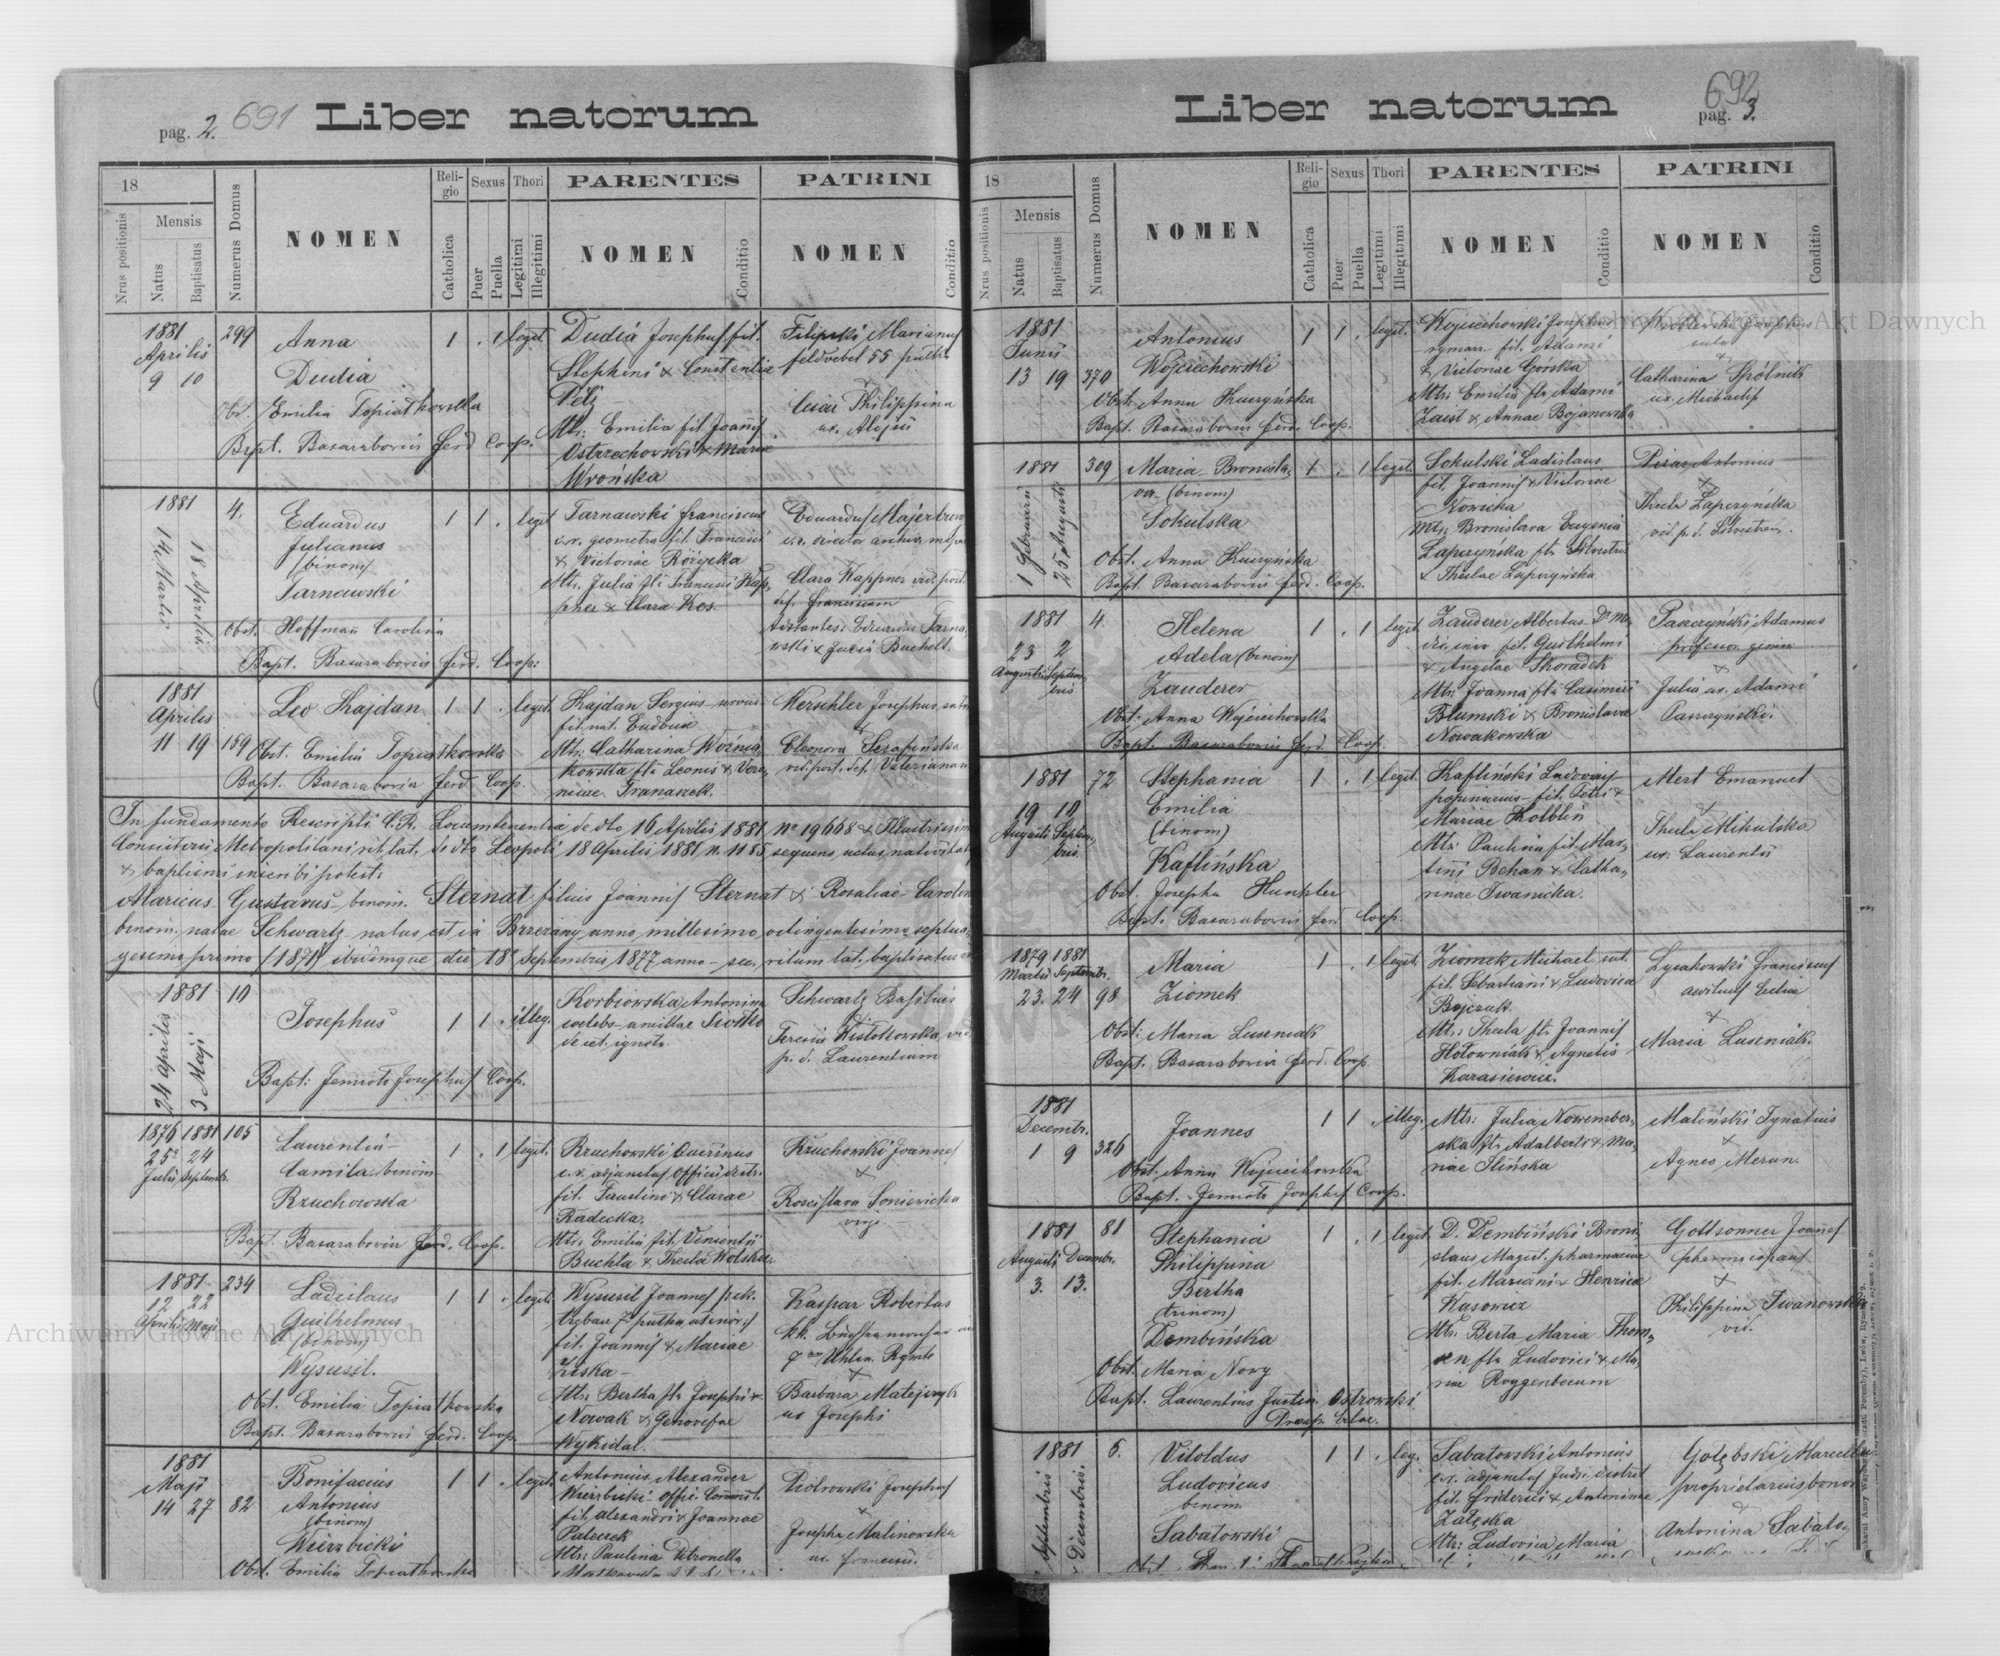 pag. 2. 691 Liber natorum
18
Nrus positionis
Mensis
Natus
Baptisatus
Numerus Domus
NOMEN
Reli-
gio
Catholica
Sexus
Puer
Puella
Thori
Legitimi
Illegitimi
PARENTES
NOMEN
Conditio
PATRINI
NOMEN
Conditio
1881
Aprilis
9 10
299
Anna
Dudia
1 . 1 legit.
Obst. Emilia Topiathowska
Bapt. Basaraboviu ferd. Coop.
Dudiá Josephus fil.
Stephani & Constantiae
Mtr: Emilia fil. Joannis
Ostrzechowski & Maria
Wrońska
Filipski Marianus
feldvebel 55
Philippina
ux. Aloisii
1881
14 Martii
18 Aprilis
4.
Eduardus
Julianus
(binom)
Tarnawski
1 1 . legit
Obst. Hoffman Carolina
Bapt. Basaraboviu ferd. Coop:
Tarnawski Franciscus
c.r. geometra fil. Francisci
& Victoriae Różycka
Mtr. Julia fla Francisci Kap,
pner & Clara Kos.
Eduardus Majer
Clara Kappner vid. post.
def. Franciscum
Adstantes: Eduardus Tarna,
wski &
1881
Aprilis
11 19 159
Leo Hajdan
1 1 . legit.
Obst. Emilia Topiathowska
Bapt. Basaraboviu ferd Coop.
Hajdan Sergius
fil. nat. Eudoxia
Mtr: Catharina Woźnia,
kowska fla Leonis & Vero,
nicae Franaszek.
Kerschler Josephus
Eleonora Serafińska
vid. post. def. Valerianum
In fundamento Rescripti C.R. Locumtenentiae de dto 16 Aprilis 1881 no 19668 & Illustrissimi
Consistorii Metropolitani rit. lat. de dto Leopoli 18 Aprilis 1881 n. 1185 sequens actus nativitatis
& baptismi inscribi potest:
Maricus Gustavus binom. Sternat filius Joannis Sternat & Rosaliae Carolin
binom. natae Schwartz natus est in Brzezany anno millesimo octingentesimo septua,
gesimo primo (1871) ibidemque die 18 Septembris 1877 anno sec. ritum lat. baptisatus
1881
24 Aprilis
3 Maji
10
Josephus
1 1 . illeg.
Bapt: Jemioto Josephus Coop.
Korbiowska Antonina
coelebs
de cet. ignota
Schwartz Basilius
Teresia Kistokowska vid.
p. d. Laurentium
1876 1881
25 24
Julii Septemb.
105
Laurentia
Camila binom
Rzuchowska
1 . 1 legit.
Bapt. Basaraboviu ferd. Coop.
Rzuchowski Quirinus
c.r. adjunctus Officii
fil. Faustino & Clarae
Radecka.
Mtr: Emilia fil. Vincentii
Buchta & Thecla Wolska.
Rzuchowski Joannes
&
Rosislava Soniewicka
virgo
1881
12 22
Aprilis Maji
234
Ladislaus
Guilhelmus
(binom)
Wysusil.
1 1 . legit.
Obst. Emilia Topiathowska
Bapt. Basaraboviu ferd. Coop.
Wysusil Joannes
fil. Joannis & Mariae
Liska
Mtr: Bertha fla Josephi &
Nowak & Genovefae
Wykidal.
Kaspar Robertus
Uhlan. Rgmts
&
Barbara Matejczyk
ux Josephi
1881
Maji
14 27 82
Bonifacius
Antonius
(binom)
Wierzbicki
1 1 . legit.
Obst. Emilia Topiathowska
Antonius Alexander
Wierzbicki
fil. Alexandri & Joannae
Palecek
Mtr: Paulina Petronella
Piotrowski Josephus
&
Josepha Malinowska
ux. Francisci.
Liber natorum 692
pag. 3.
18
Nrus positionis
Mensis
Natus
Baptisatus
Numerus Domus
NOMEN
Reli-
gio
Catholica
Sexus
Puer
Puella
Thori
Legitimi
Illegitimi
PARENTES
NOMEN
Conditio
PATRINI
NOMEN
Conditio
1881
Junii
13 19 370
Antonius
Wojciechowski
1 1 . legit.
Obst. Anna Kuczyńska
Bapt. Basaraboviu ferd. Coop.
Wojciechowski Josephus
fil. Adami
& Victoriae Górska
Mtr: Emilia fla Adami
Zaist & Annae Bojanowska
&
Catharina Spólnik
ux. Michaelis
1881
1 Februarii
25 Augusti
309
Maria Bronisla,
va (binom)
Sokulska
1 . 1 legit.
Obst. Anna Kuczyńska
Bapt. Basaraboviu ferd. Coop.
Sokulski Ladislaus
fil. Joannis & Victoriae
Mtr: Bronislava Eugenia
Łapczyńska fla Silvestri
& Theclae Łapczyńska
Pisar Antonius
&
Thecla Łapczyńska
vid. p. d. Silvestrem.
1881
23 2
Augusti Septem,
bris
4.
Helena
Adela (binom)
Zauderer
1 . 1 legit
Obst. Anna Wojciechowska
Bapt. Basaraboviu ferd. Coop.
Zauderer Albertus Dr Me,
fil. Guilhelmi
& Angelae Skoradek
Mtr: Joanna fla Casimiri
Blumski & Bronislava
Nowakowska
Paszczyński Adamus
professor gimn
&
Julia ux. Adami
Paszczyński.
1881
19 10
Augusti Septem,
bris
72
Stephania
Emilia
(binom)
Kaflińska
1 . 1 legit
Obst. Josepha Hunkler
Bapt. Basaraboviu ferd. Coop.
Kafliński Ludovicus
fil. Petri &
Mariae Kolblin
Mtr: Paulina fil. Mar,
tini Behan & Catha,
rinae Iwanicka.
Mert Emanuel
&
Thecla Mikulska
ux. Laurentii
1879 1881
Martii Septembr.
23. 24 98
Maria
Ziomek
1 . 1 legit.
Obst: Maria Luseniak
Bapt. Basaraboviu ferd. Coop.
Ziomek Michael sut.
fil. Sebastiani & Ludovica
Bojczuk.
Mtr: Thecla fla Joannis
Hołowniak & Agnetis
Karasiewicz.
Lysakowski Franciscus
aedituus Eccliae
&
Maria Luseniak.
1881
Decembr.
1 9 326
Joannes
1 1 . illeg.
Obst. Anna Wojciechowska
Bapt. Jemioto Josephus Coop.
Mtr: Julia Nowember,
ska fla Adalberti & Ma,
riae Slińska
Maliński Ignatius
&
Agnes Merun.
1881
Augusti Decembr.
3. 13.
81
Stephania
Philippina
Bertha
(trinom)
Dembińska
1 . 1 legit
Obst. Maria Novy
Bapt. Laurentius Justin. Ostrowski
Praep. Eclae.
D. Dembiński Broni,
slaus Magist. pharmaciae
fil. Mariani & Henrica
Kasowicz
Mtr: Berta Maria Thom,
sen fla Ludovici & Ma,
riae Roggenbaum
Gottsonner Joannes
pharmacopaeus
&
Philippina Iwanowska
vid.
1881
Septembris
Decembris.
6.
Vitoldus
Ludovicus
binom.
Sabatowski
1 1 . leg.
Sabatowski Antonius
c.r. adjunctus Judic. district
fil. Friderici & Antoninae
Zaleska
Mtr: Ludovica Maria
Gołębski Marcellus
proprietarius bonor
&
Antonina Sabato,
Archiwum Główne Akt Dawnych
Archiwum Główne Akt Dawnych